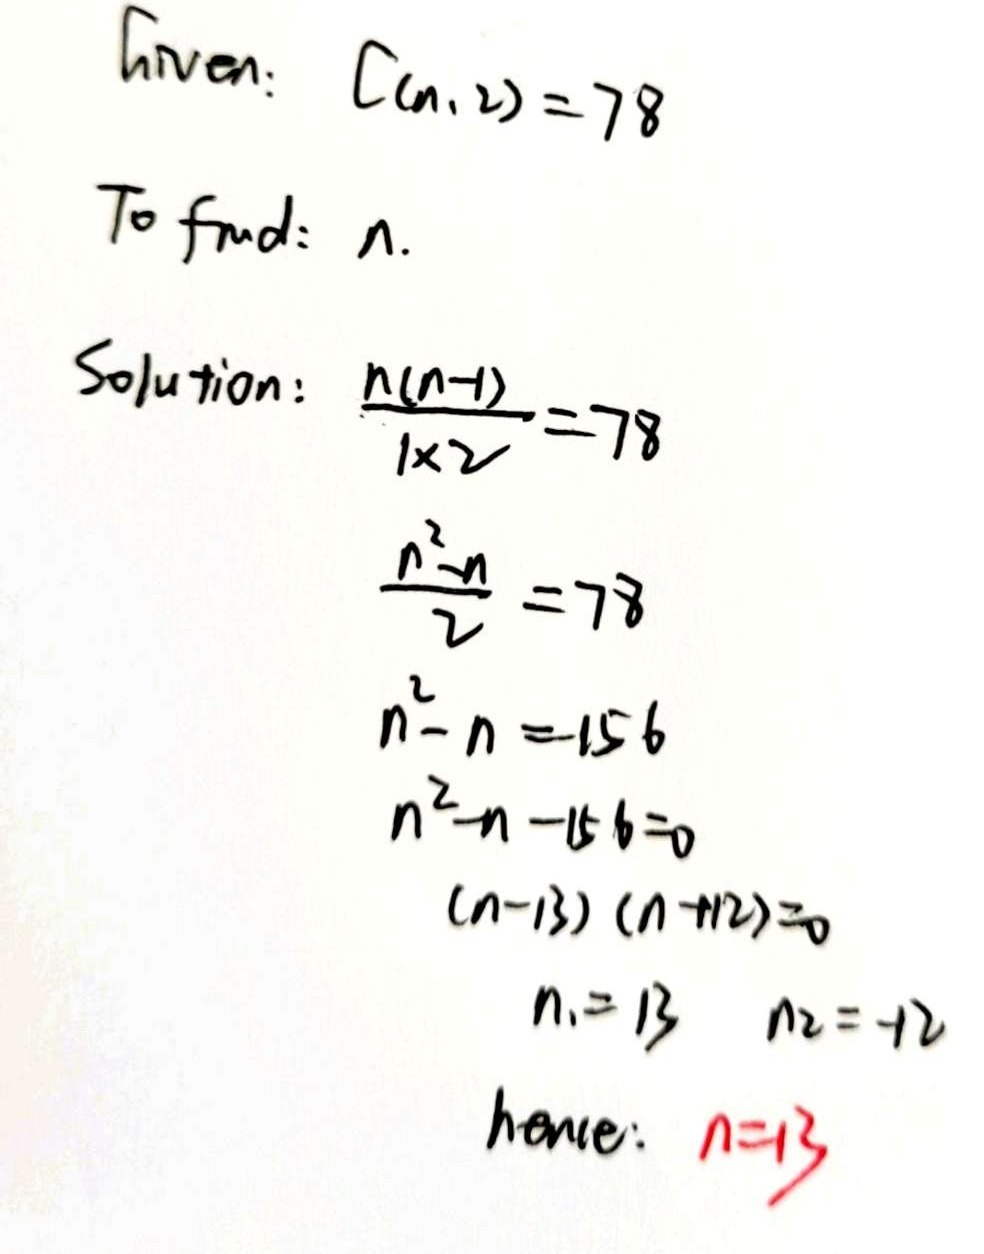 Given: C(n, 2) = 78
To find: n.
Solution: n(n-1)/1×2 = 78
n²-n/2 = 78
n² - n = 156
n² - n - 156 = 0
(n-13) (n+12) = 0
n₁ = 13 n₂ = -12
hence: n=13